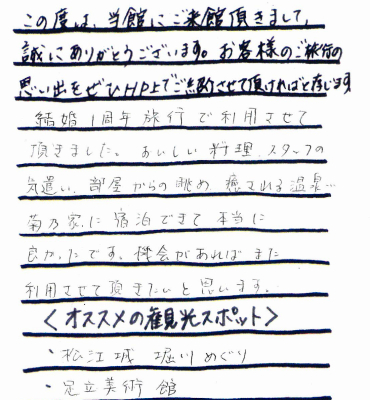 この度は、当館にご来館頂きまして、
誠にありがとうございます。お客様のご旅行の
思い出をぜひHP上でご紹介させて頂ければと存じます
結婚1周年旅行で利用させて
頂きました。おいしい料理、スタッフの
気遣い、部屋からの眺め、癒される温泉…
菊乃家に宿泊できて本当に
良かったです。機会があればまた
利用させて頂きたいと思います。
<オススメの観光スポット>
・松江城 堀川めぐり
・足立美術館